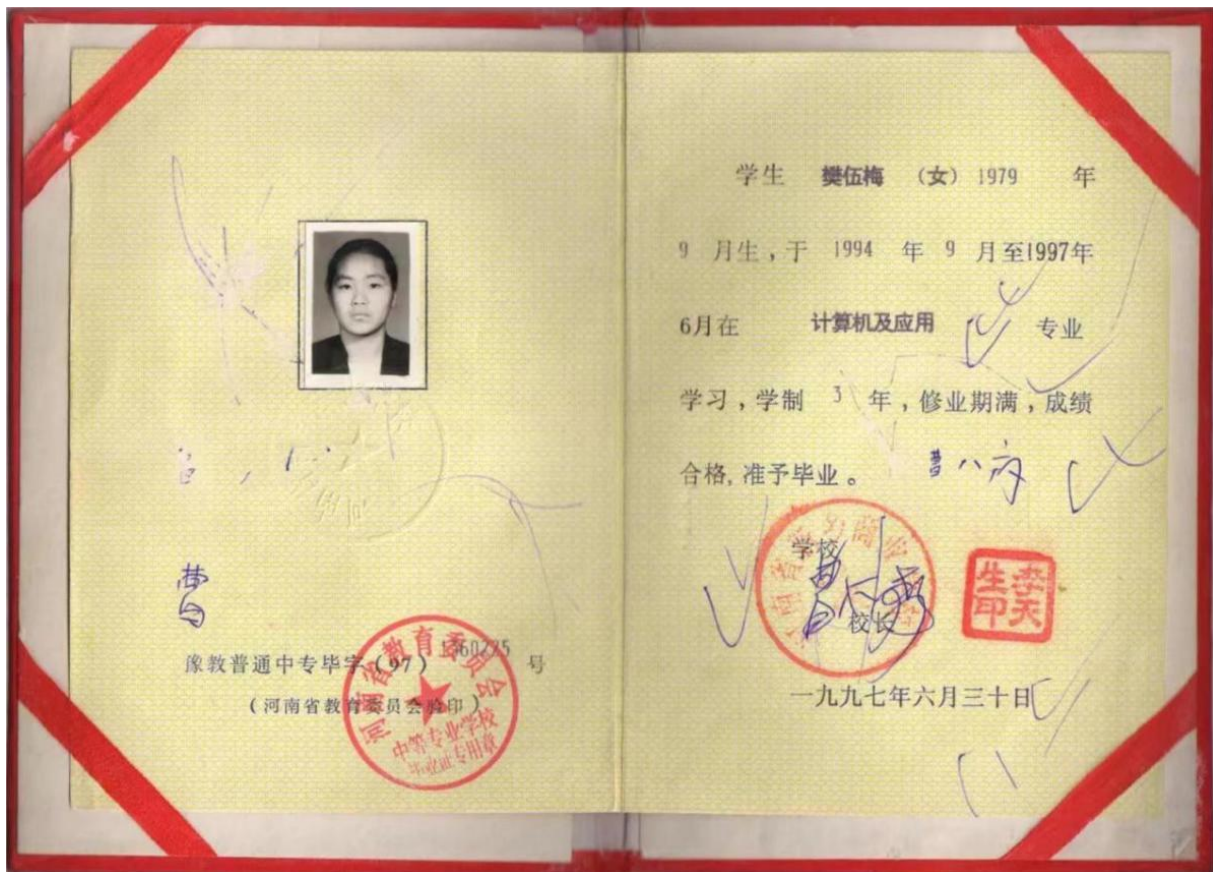 豫教普通中专毕字(97)1360225号
(河南省教育委员会验印)
河南省教育委员会
中等专业学校
毕业证专用章
曹
学生 樊伍梅 (女) 1979 年
9 月生,于 1994 年 9 月至1997年
6月在 计算机及应用 专业
学习,学制 3 年,修业期满,成绩
合格,准予毕业。
学校
校长
李天
生印
一九九七年六月三十日